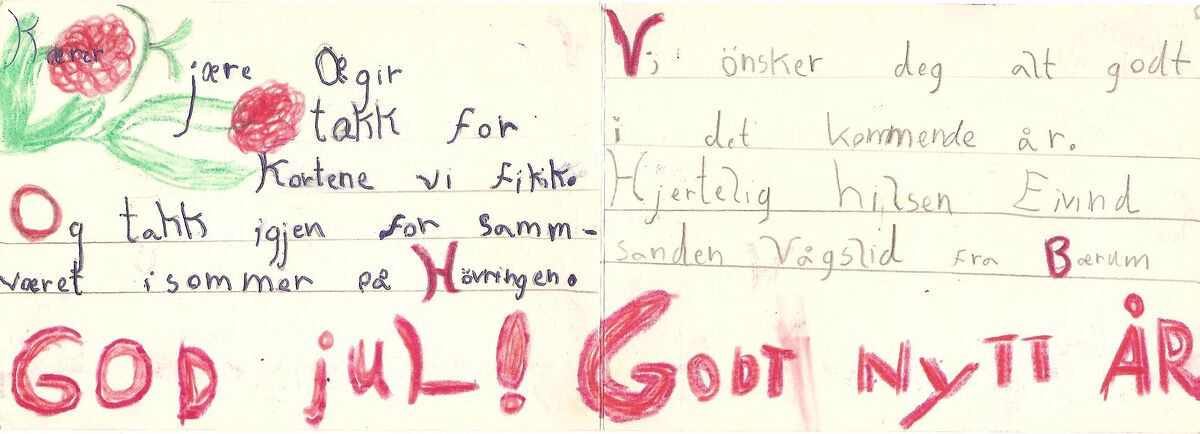 Kærer
jære Ægir
takk for
Kortene vi fikik.
Og takk igjen for samm-
været i sommer på Hövringen.
GOD jUL!
Vi önsker deg alt godt
i det kommende år.
Hjertelig hilsen Eivind
sanden Vågslid fra Bærum
GODT NYTT ÅR